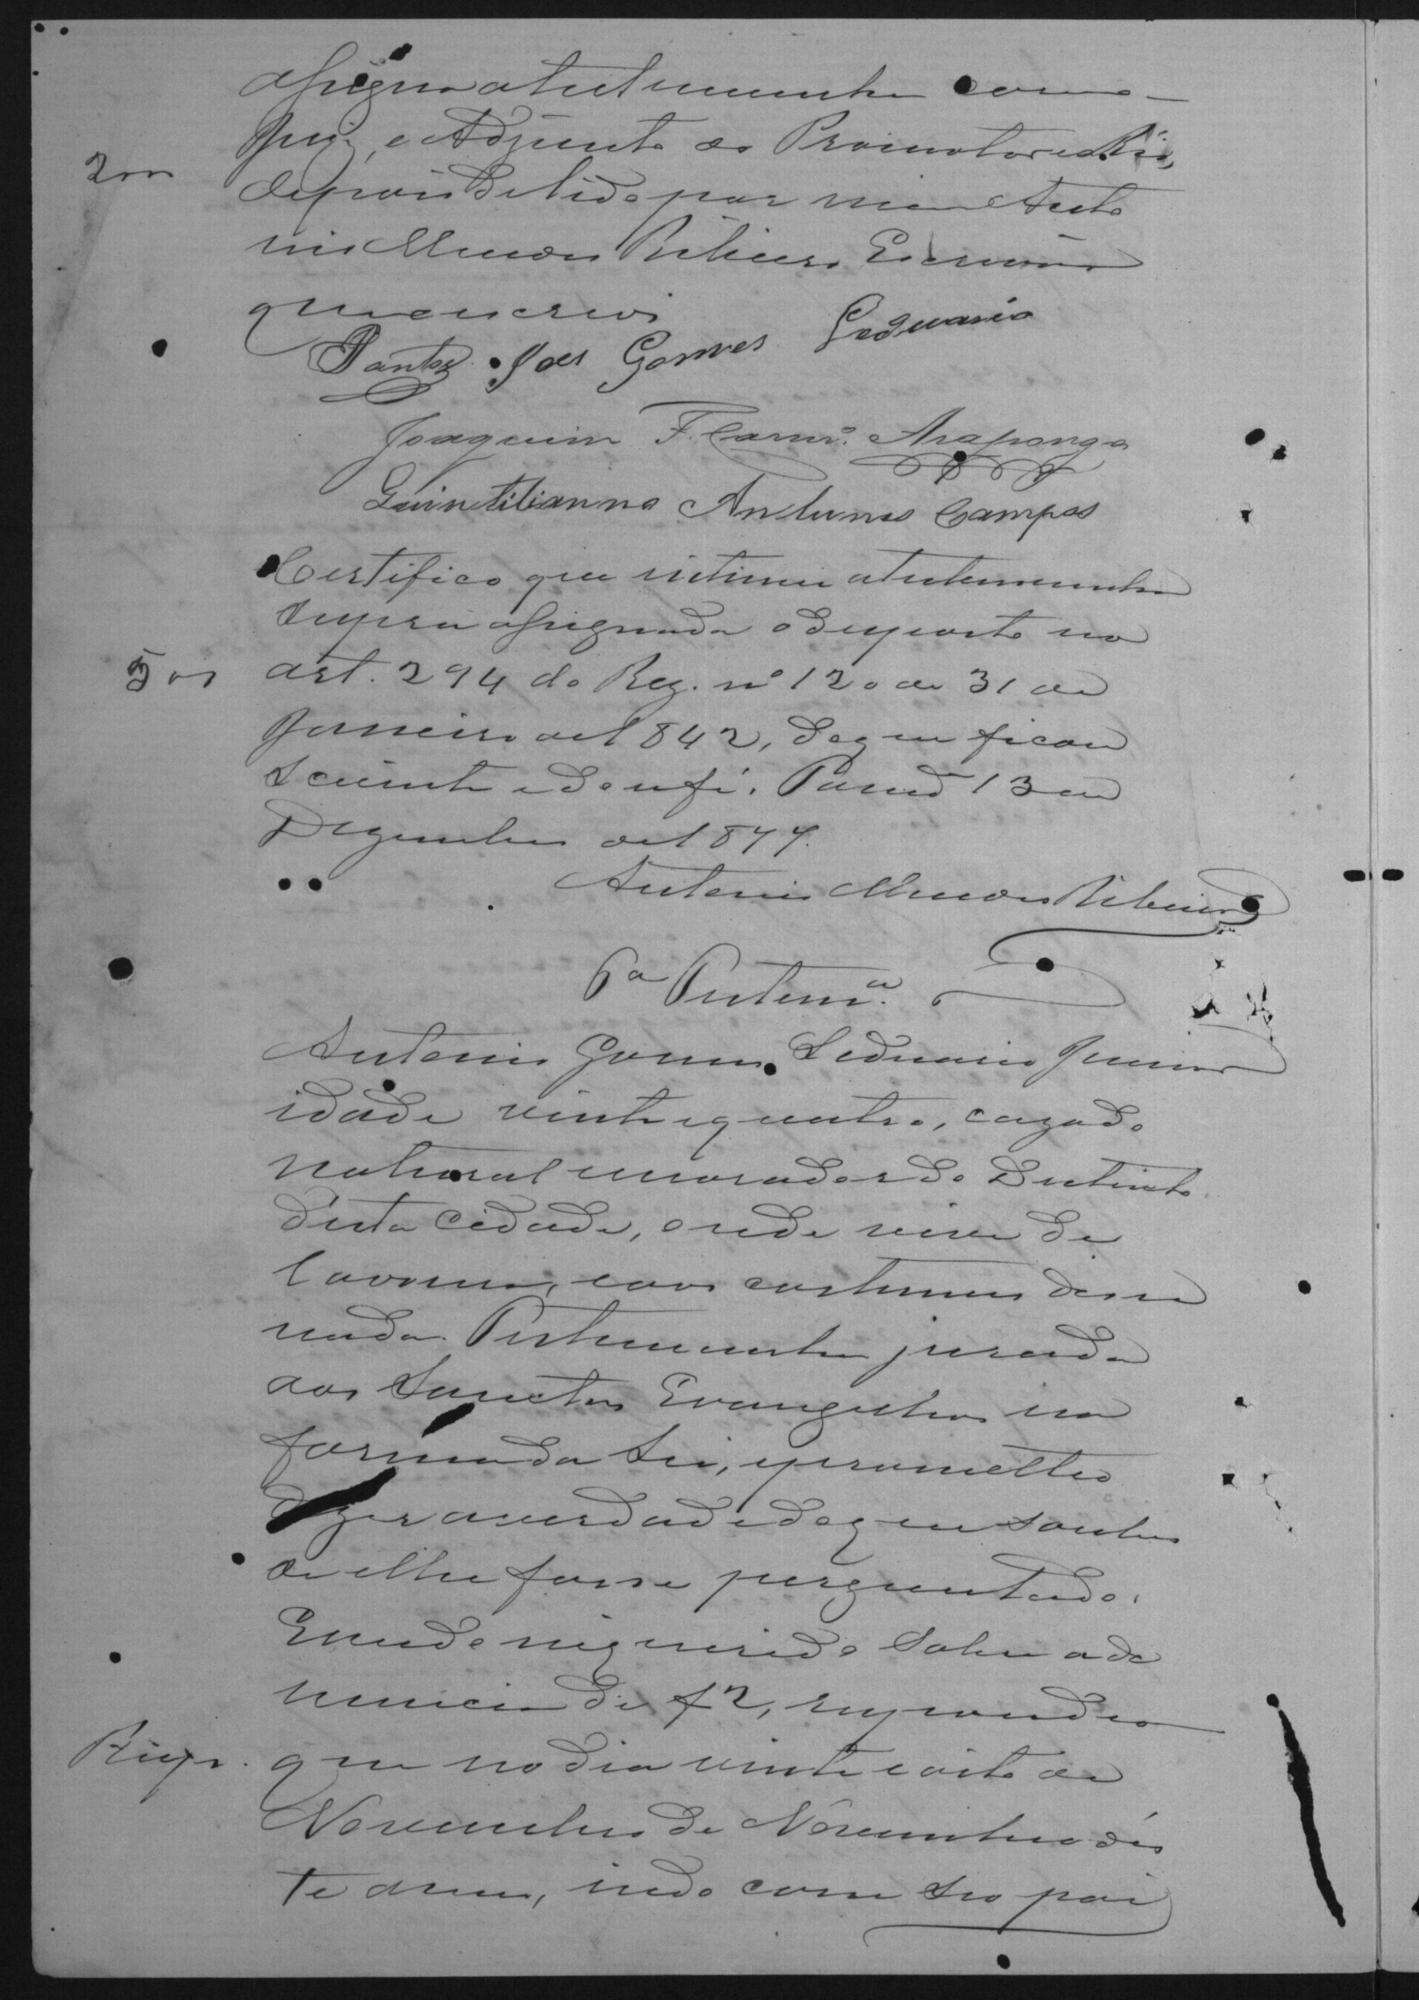 assigna a testemunha com o
Juiz, e Adjunto do Promotor e Réo,
2000
depois de lido por mim Anto
nio Mendes Ribeiro Escrivão
que escrevi
Santos. José Gomes Leduario
Joaquim F. Carnr.º Araponga
Quintilianno Antunes Campos
Certifico que intimei a testemunha
supra assignada o disposto no
500
art. 294 do Reg. nº 120 de 31 de
Janeiro de 1842, do que ficou
sciente e dou fé.
13 de
Dezembro de 1877.
Antonio Mendes Ribeiro
6ª Testemª.
Antonio Gomes Leduario Junior
idade vinte e quatro, cazado
natural e morador do Districto
d'esta Cidade, onde vive de
lavoura, e aos costumes disse
nada. Testemunha jurada
aos Sanctos Evangelhos na
forma da Lei, e prometteo
dizer a verdade do que soubes
se e lhe fosse perguntado.
E sendo inquirido sobre a de
nuncia de f 2, respondeo
Resp.
que no dia vinte e oito de
Novembro de Novembro dés
te anno, indo com seo pai